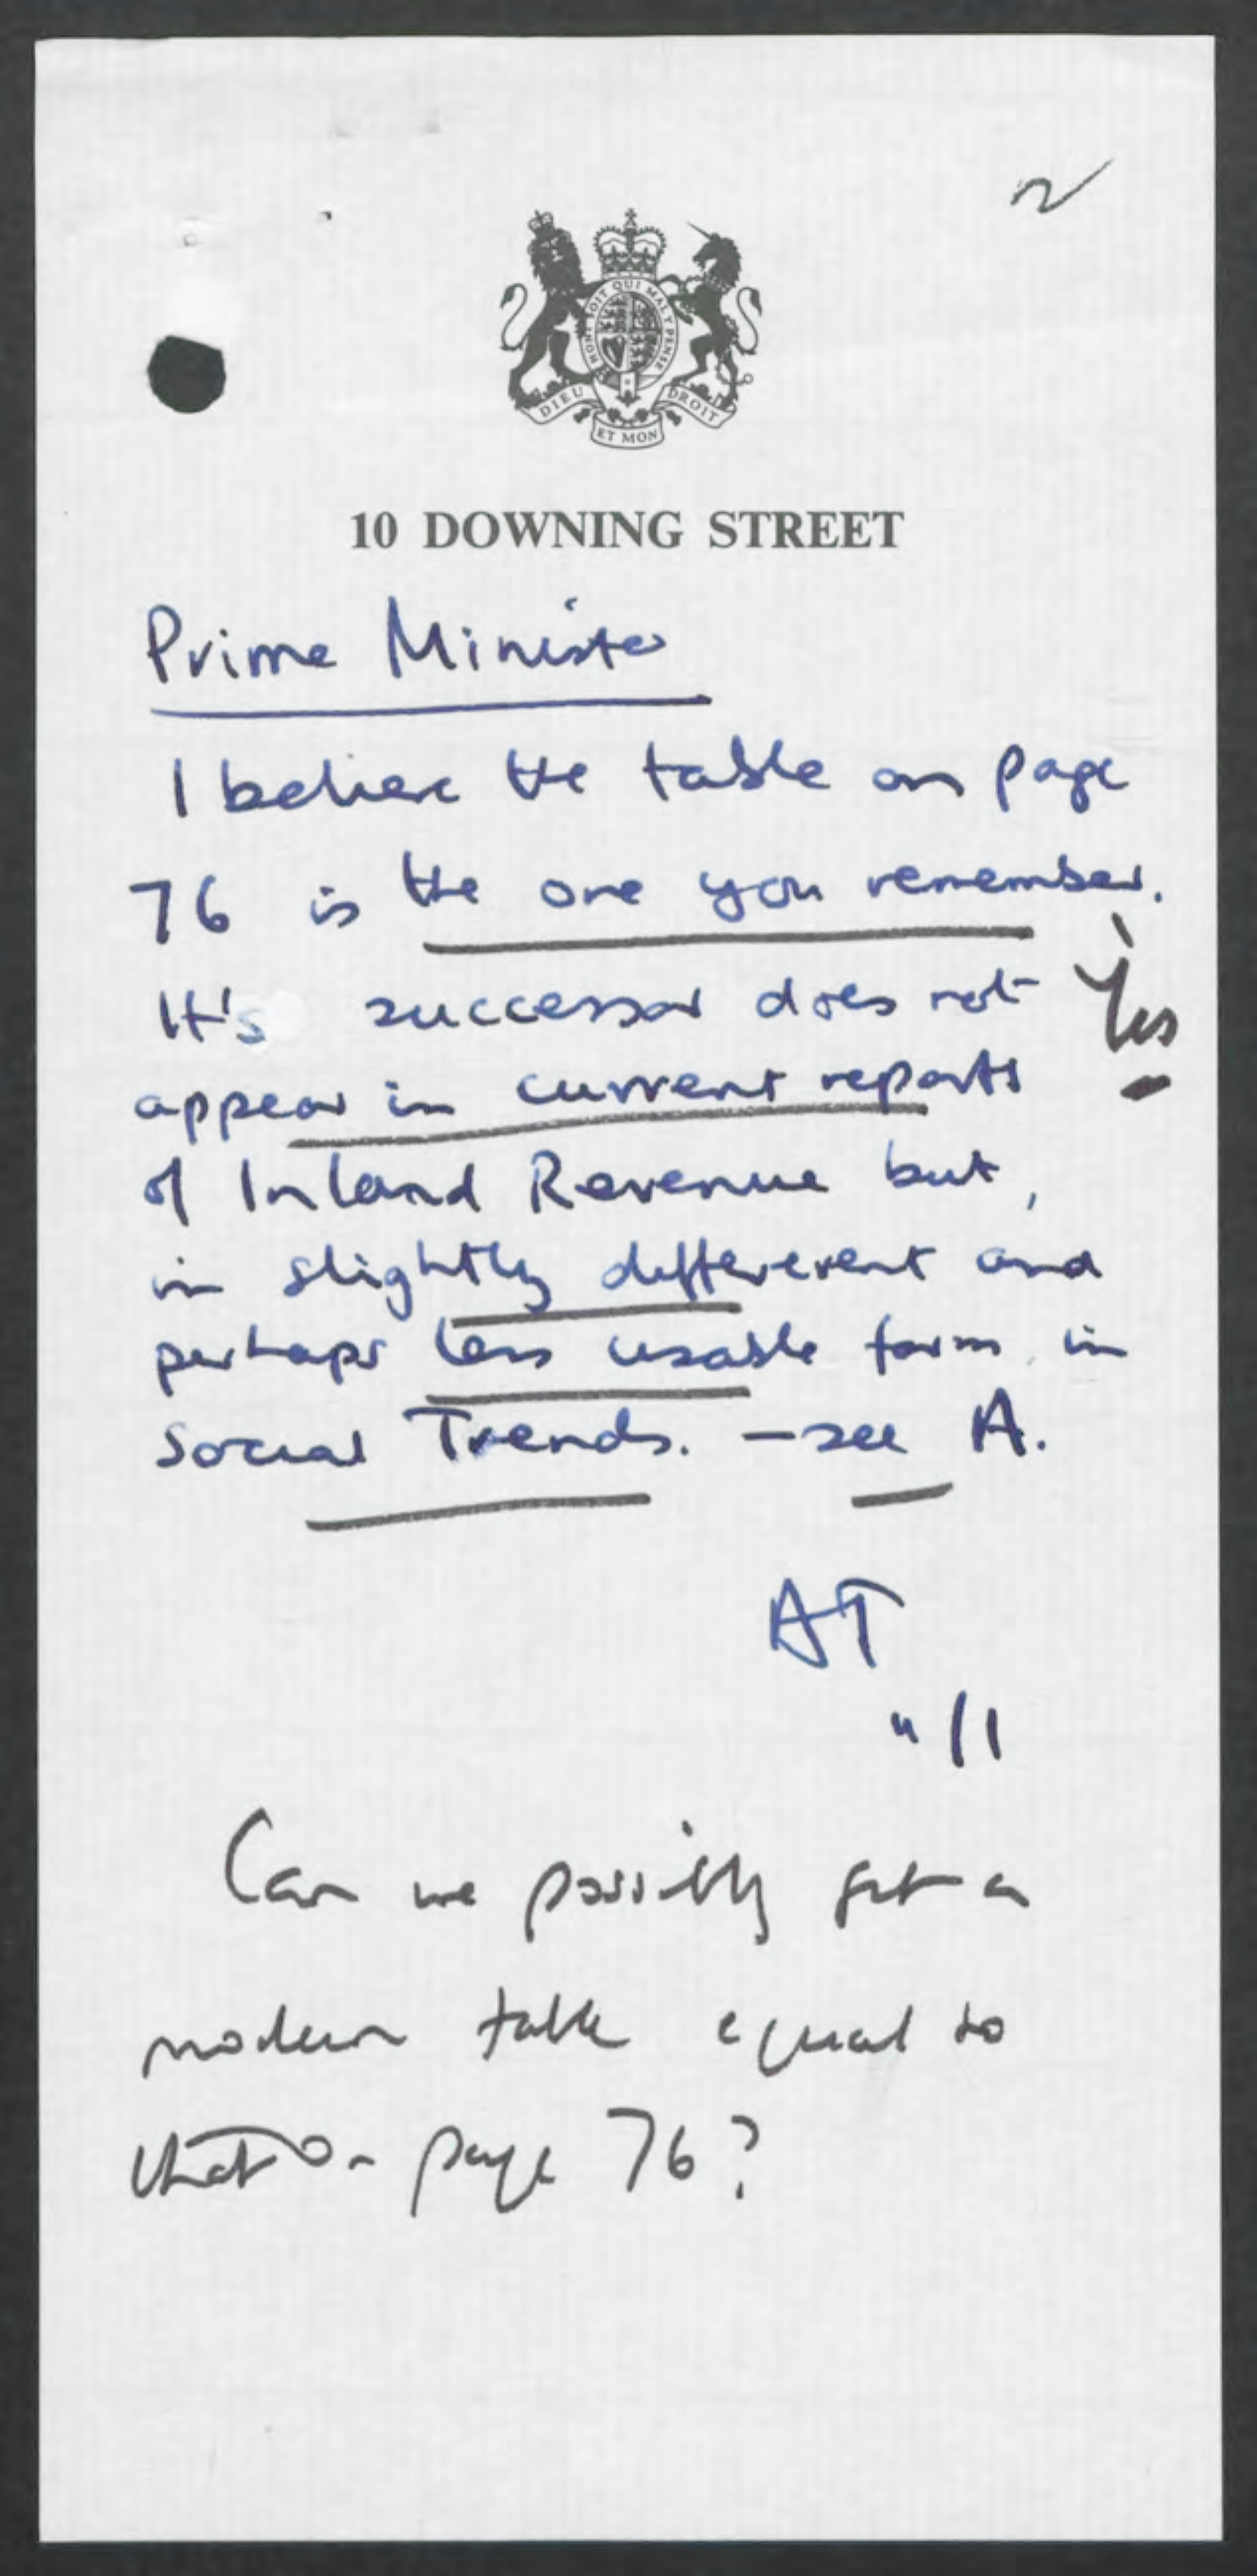 HONI SOIT QUI MAL Y PENSE
DIEU ET MON DROIT
10 DOWNING STREET
Prime Minister
I believe the table on page
76 is the one you remember.
It's successor does not
Yes
appear in current reports
of Inland Revenue but,
in slightly differerent and
perhaps less usable form, in
Social Trends. - see A.
AT
11/1
Can we possibly get a
modern table equal to
that on page 76?